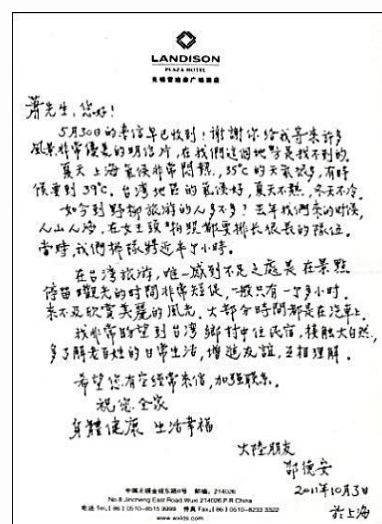 LANDISON
PLAZA HOTEL
无锡雷迪森广场酒店
萧先生,您好!
5月30日的来信早已收到!谢謝你给我寄来许多
風景非常優美的明信片,在我們這個地方是找不到的。
夏天上海氣候非常悶熱,35℃的天氣很多,有時
候要到39℃。台湾地區的氣候好,夏天不熱,冬天不冷。
如今到野柳旅游的人多不多?去年我們來的时候,
人山人海,在女王頭拍照都要排长很長的隊伍。
當時,我們排隊將近半个小時。
在台湾旅游,唯一感到不足之處是在景點
停留观光的时间非常短促,一般只有一个多小时。
来不及欣賞美麗的風光。大部分時間都是在汽車上。
我非常盼望到台湾鄉村中住民宿,接触大自然,
多了解老百姓的日常生活,增進友誼,互相理解。
希望您有空经常来信,加強联系。
祝您全家
身體健康 生活幸福
大陸朋友
邵德安
2011年10月3日
於上海
中国无锡金城东路8号 邮编:214026
No.8 Jincheng East Road.Wuxi 214026.P.R.China
电话 Tel.:( 86 ) 0510-8515 9999 传真 Fax.:( 86 ) 0510-8233 3322
www.wxlds.com